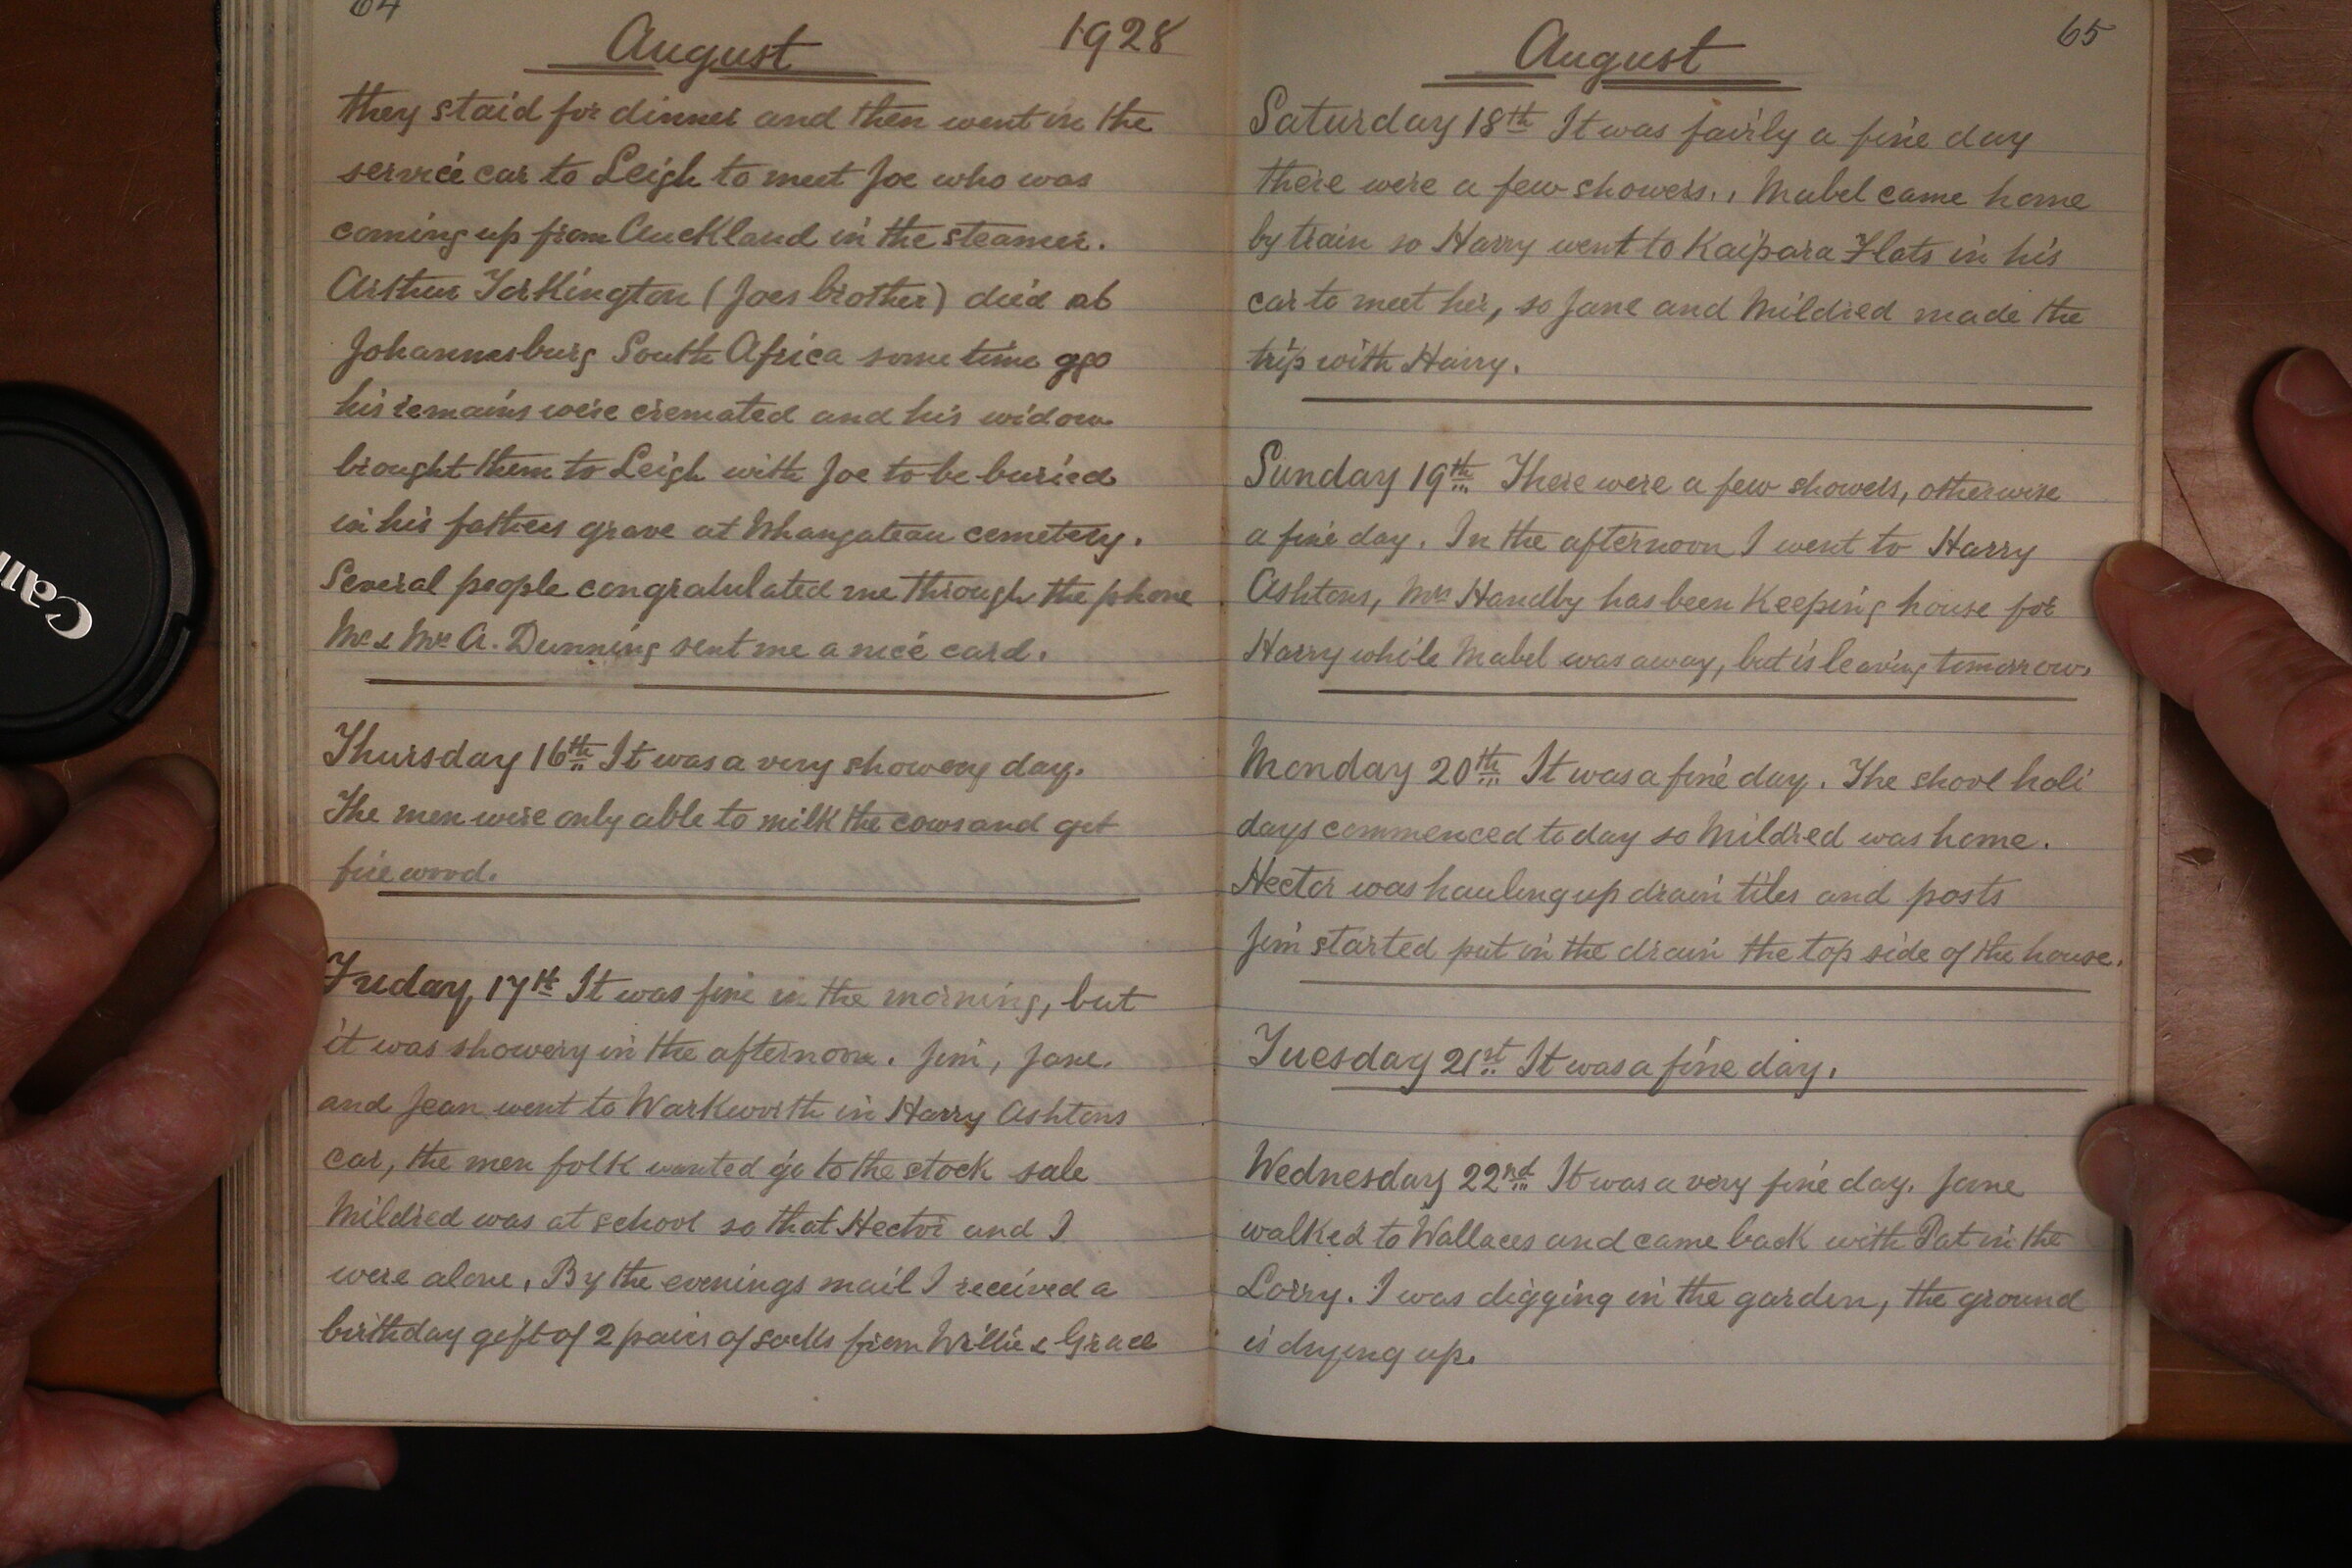 64
August 1928
they staid for dinner and then went in the
service car to Leigh to meet Joe who was
coming up from Auckland in the steamer.
Arthur Torkington (Joes brother) died at
Johannesburg South Africa some time ago
his remains were cremated and his widow
brought them to Leigh with Joe to be buried
in his fathers grave at Whangateau cemetery.
Several people congratulated me through the phone
Mr & Mrs A. Dunning sent me a nice card.
Thursday 16th It was a very showery day.
The men were only able to milk the cows and get
fire wood.
Friday 17th It was fine in the morning, but
it was showery in the afternoon. Jim, Jane
and Jean went to Warkworth in Harry Ashtons
car, the men folk wanted go to the stock sale
Mildred was at school so that Hector and I
were alone. By the evenings mail I received a
birthday gift of 2 pairs of socks from Willie & Grace
65
August
Saturday 18th It was fairly a fine day
there were a few showers., Mabel came home
by train so Harry went to Kaipara Flats in his
car to meet her, so Jane and Mildred made the
trip with Harry.
Sunday 19th There were a few showers, otherwise
a fine day. In the afternoon I went to Harry
Ashtons, Mrs Handby has been Keeping house for
Harry while Mabel was away, but is leaving tomorrow.
Monday 20th It was a fine day. The shool holi
days commenced to day so Mildred was home.
Hector was hauling up drain tiles and posts
Jim started put in the drain the top side of the house.
Tuesday 21st It was a fine day.
Wednesday 22nd It was a very fine day. Jane
walked to Wallaces and came back with Pat in the
Lorry. I was digging in the garden, the ground
is drying up.
Can